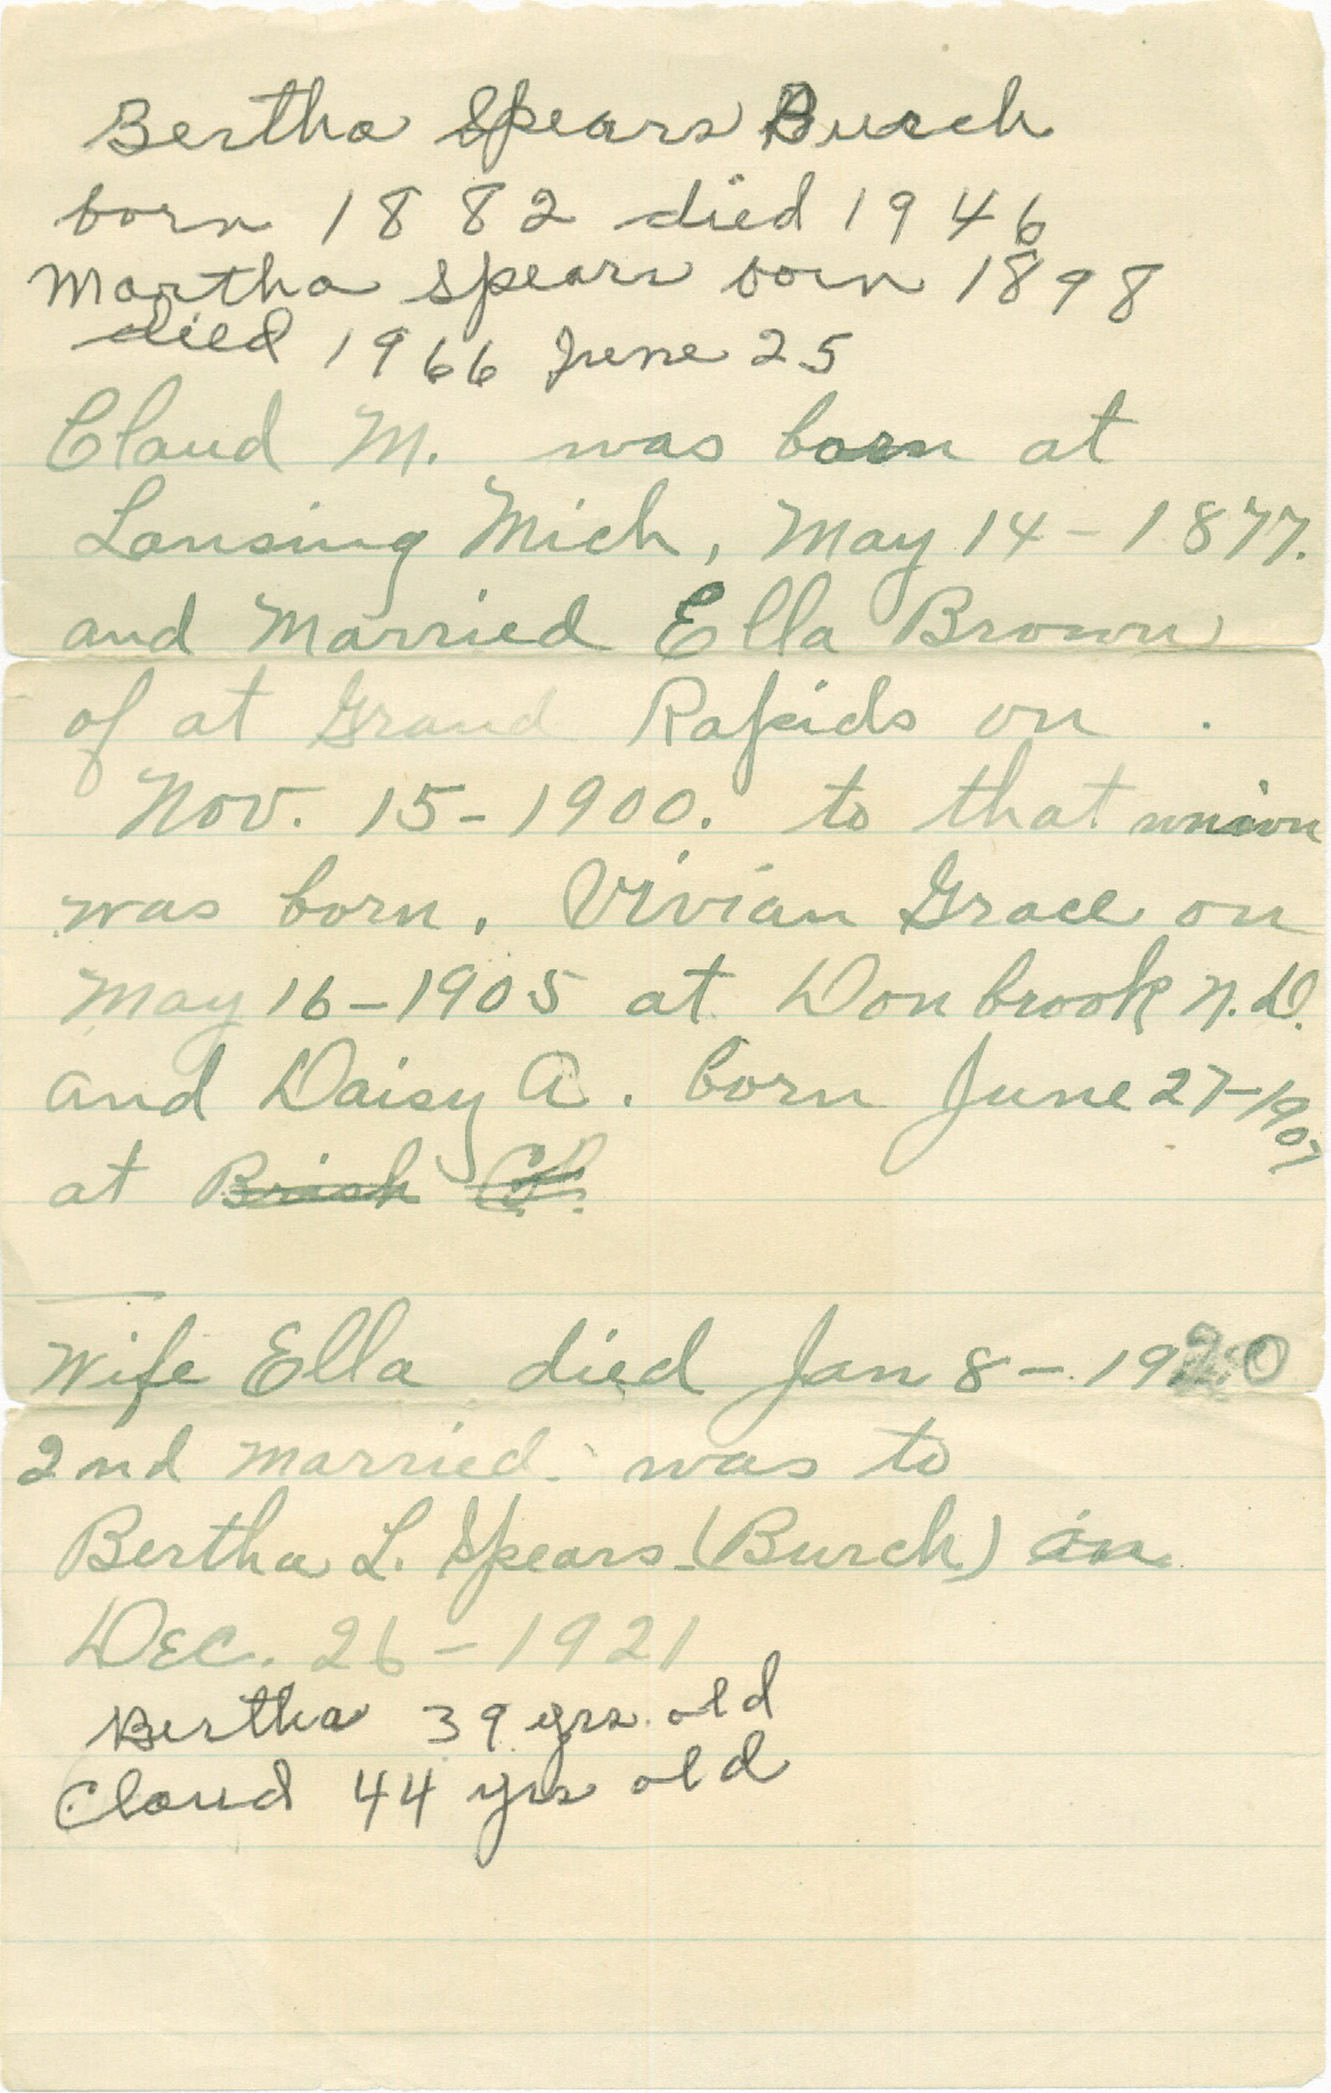 Bertha Spears Burch
born 1882 died 1946
Martha Spears born 1898
died 1966 June 25
Claud M. was born at
Lansing Mich, May 14 - 1877.
and Married Ella Brown
of at Grand Rapids on
Nov. 15 - 1900. to that union
was born, Vivian Grace on
May 16 - 1905 at Donbrook N.D.
and Daisy A. born June 27 - 1907
at
Wife Ella died Jan 8 - 1920
2nd married was to
Bertha L. Spears (Burch) on
Dec. 26 - 1921
Bertha 39 yrs. old
Claud 44 yrs old